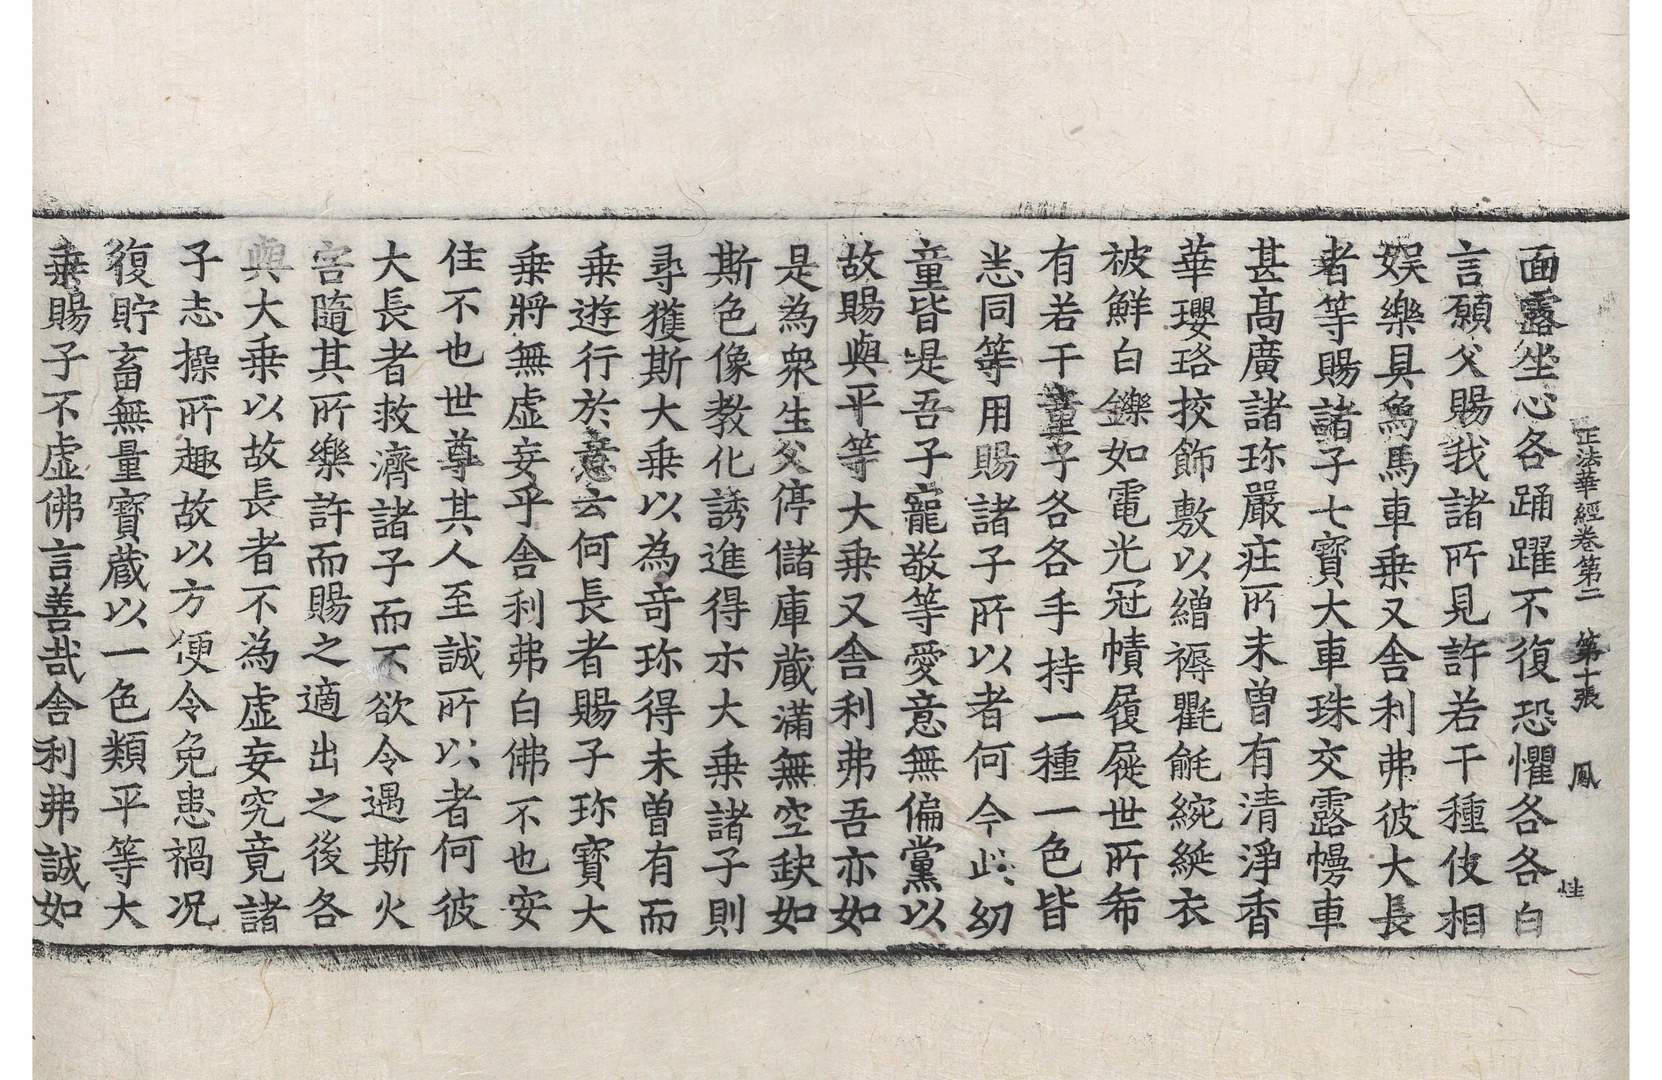 正法華經卷第二　第十張　鳳　性
面露坐心各踊躍不復恐懼各各白
言願父賜我諸所見許若干種伎相
娛樂具爲馬車乗又舍利弗彼大長
者等賜諸子七寳大車珠交露幔車
甚髙廣諸珎嚴庄所未曽有清淨香
華瓔珞挍飾敷以繒褥氍毹綩綖衣
被鮮白鑠如電光冠幘履屣世所希
有若干童子各各手持一種一色皆
悉同等用賜諸子所以者何今此幼
童皆是吾子寵敬等愛意無偏黨以
故賜與平等大乗又舍利弗吾亦如
是為衆生父停儲庫蔵滿無空缺如
斯色像教化誘進得示大乗諸子則
尋獲斯大乗以為奇珎得未曽有而
乗遊行於意云何長者賜子珎寳大
乗將無虛妄乎舍利弗白佛不也安
住不也世尊其人至誠所以者何彼
大長者救濟諸子而不欲令遇斯火
害隨其所樂許而賜之適出之後各
與大乗以故長者不為虛妄究竟諸
子志操所趣故以方便令免患禍况
復貯畜無量寳蔵以一色類平等大
乗賜子不虛佛言善哉舍利弗誠如